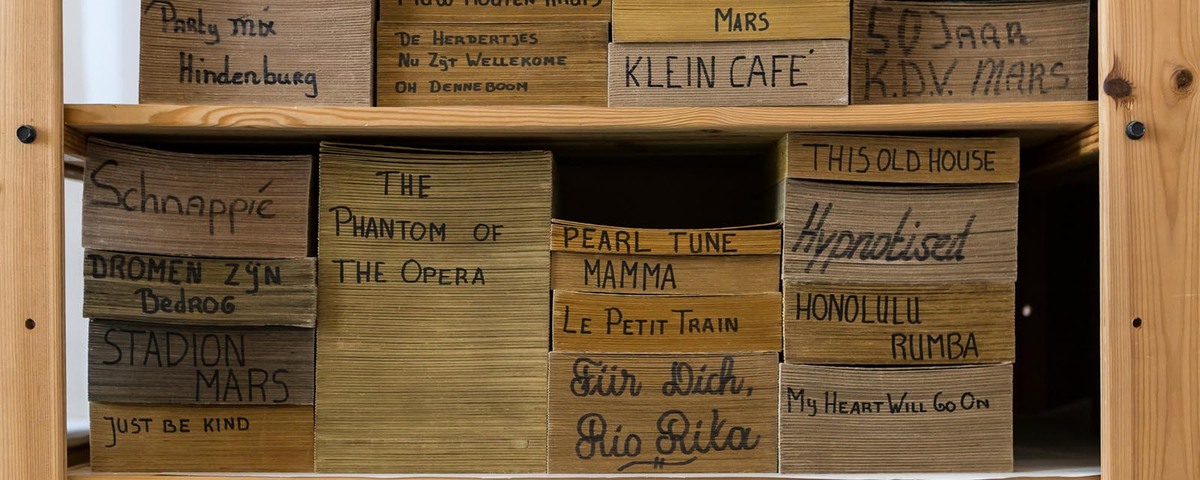 Party mix
Hindenburg
De Herdertjes
Nu Zijt Wellekome
Oh Denneboom
Mars
KLEIN CAFÉ
50 Jaar
K.D.V. Mars
Schnappié
DROMEN ZIJN
BedroG
STADION
MARS
Just be kind
The
Phantom of
The Opera
PEARL TUNE
MAMMA
Le Petit Train
Für Dich,
Rio Rika
THIS OLD HOUSE
Hypnotised
HONOLULU
RUMBA
My Heart Will Go On